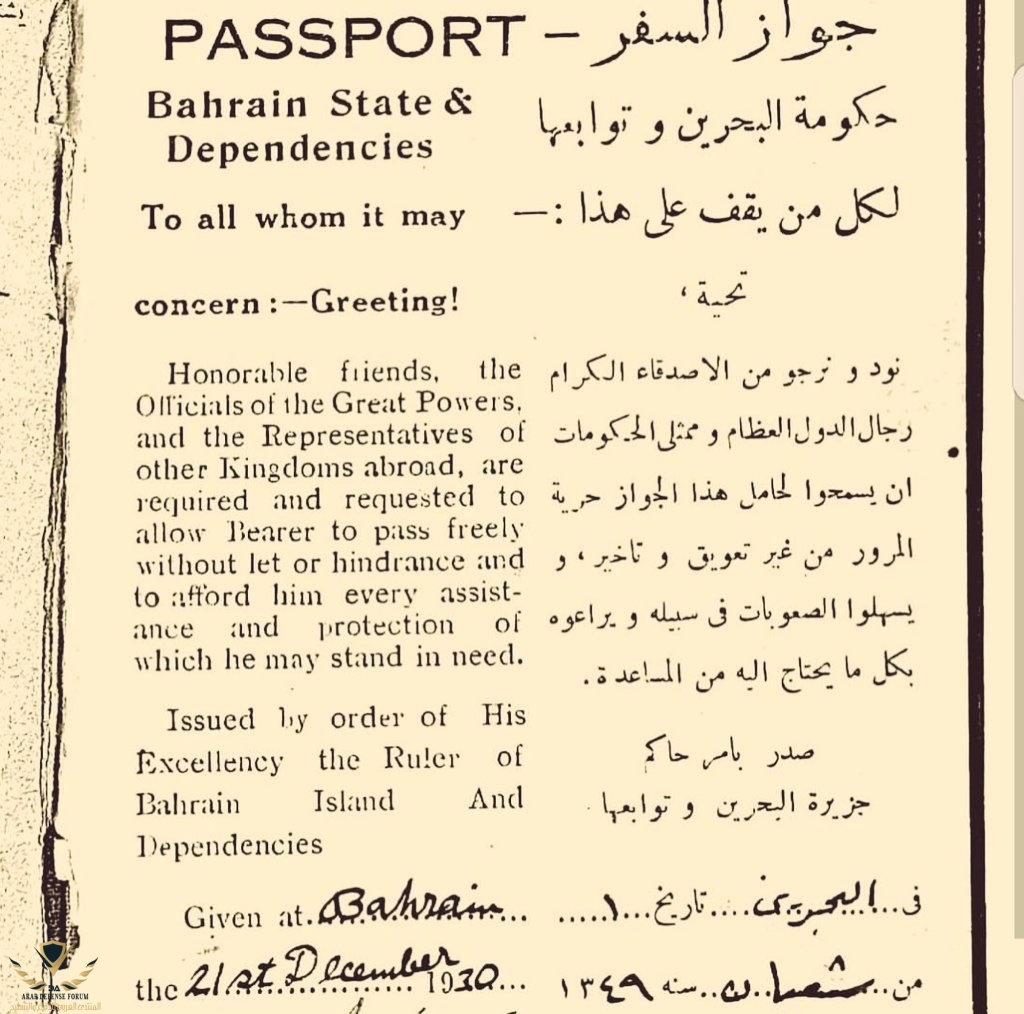 PASSPORT – جواز السفر
Bahrain State &
Dependencies
حكومة البحرين و توابعها
To all whom it may
concern :—Greeting!
لكل من يقف على هذا :—
تحية ،
Honorable friends, the
Officials of the Great Powers,
and the Representatives of
other Kingdoms abroad, are
required and requested to
allow Bearer to pass freely
without let or hindrance and
to afford him every assist-
ance and protection of
which he may stand in need.
نود و نرجو من الاصدقاء الكرام
رجال الدول العظام و ممثلى الحكومات
ان يسمحوا لحامل هذا الجواز حرية
المرور من غير تعويق و تاخير ، و
يسهلوا الصعوبات فى سبيله و يراعوه
بكل ما يحتاج اليه من المساعدة .
Issued by order of His
Excellency the Ruler of
Bahrain Island And
Dependencies
صدر بامر حاكم
جزيرة البحرين و توابعها .
Given at..Bahrain...
the 21st December 1930...
فى...البحرين....تاريخ...١.....
من..شعبان..سنه ١٣٤٩
ARAB DEFENSE FORUM